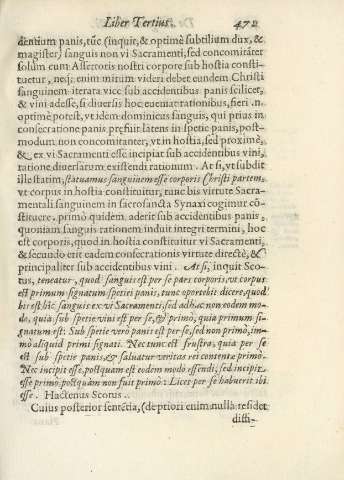 Liber Tertius. 472
dentium panis, tũc (inquit, & optimè subtilium dux, &
magister) sanguis non vi Sacramenti, sed concomitãter
solùm cum Assertoris nostri corpore sub hostia consti-
tuetur, neq; enim mirum videri debet eundem Christi
sanguinem iterata vice sub accidentibus panis scilicet,
& vini adesse, si diuersis hoc eueniat rationibus, fieri
optimè potest, vt idem dominicus sanguis, qui prius in
consecratione panis præfuit latens in spetie panis, post-
modum non concomitanter, vt in hostia, sed proximè,
&, ex vi Sacramenti esse incipiat sub accidentibus vini,
ratione diuersarum existendi rationum. At si, vt subdit
ille statim, statuamus sanguinem esse corporis Christi partem,
vt corpus in hostia constituitur, tunc bis virtute Sacra-
mentali sanguinem in sacrosancta Synaxi cogimur cõ-
stituere. primò quidem aderit sub accidentibus panis,
quoniam sanguis rationem induit integri termini, hoc
est corporis, quod in hostia constituitur vi Sacramenti,
& secundo erit eadem consecrationis virtute directè, &
principaliter sub accidentibus vini. At si, inquit Sco-
tus, teneatur, quod sanguis est per se pars corporis, vt corpus
est primum signatum spetiei panis, tunc oportebit dicere, quod
bis est hìc sanguis ex vi Sacramenti, sed adhuc non eodem mo-
do, quia sub spetie vini est per se, & primò, quia primum si-
gnatum est: Sub spetie verò panis est per se, sed non primò, im-
mò aliquid primi signati. Nec tunc est frustra, quia per se
est sub spetie panis, & saluatur veritas rei contentæ primò.
Nec incipit esse, postquam est eodem modo essendi, sed incipit
esse primò, postquàm non fuit primò: Licet per se habuerit ibi
esse. Hactenus Scotus.
Cuius posterior sentẽtia, (de priori enim nulla residet
diffi-